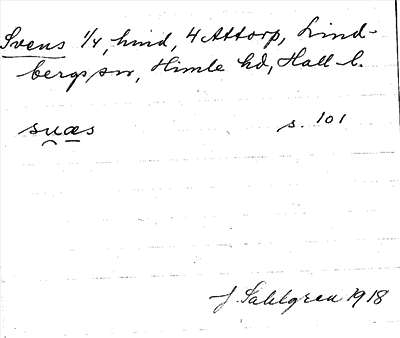 Svens 1/4, hmd, 4 Attorp, Lind-
bergs sn, Himle hd, Hall. l.
suæs s. 101
J. Sahlgren 1918